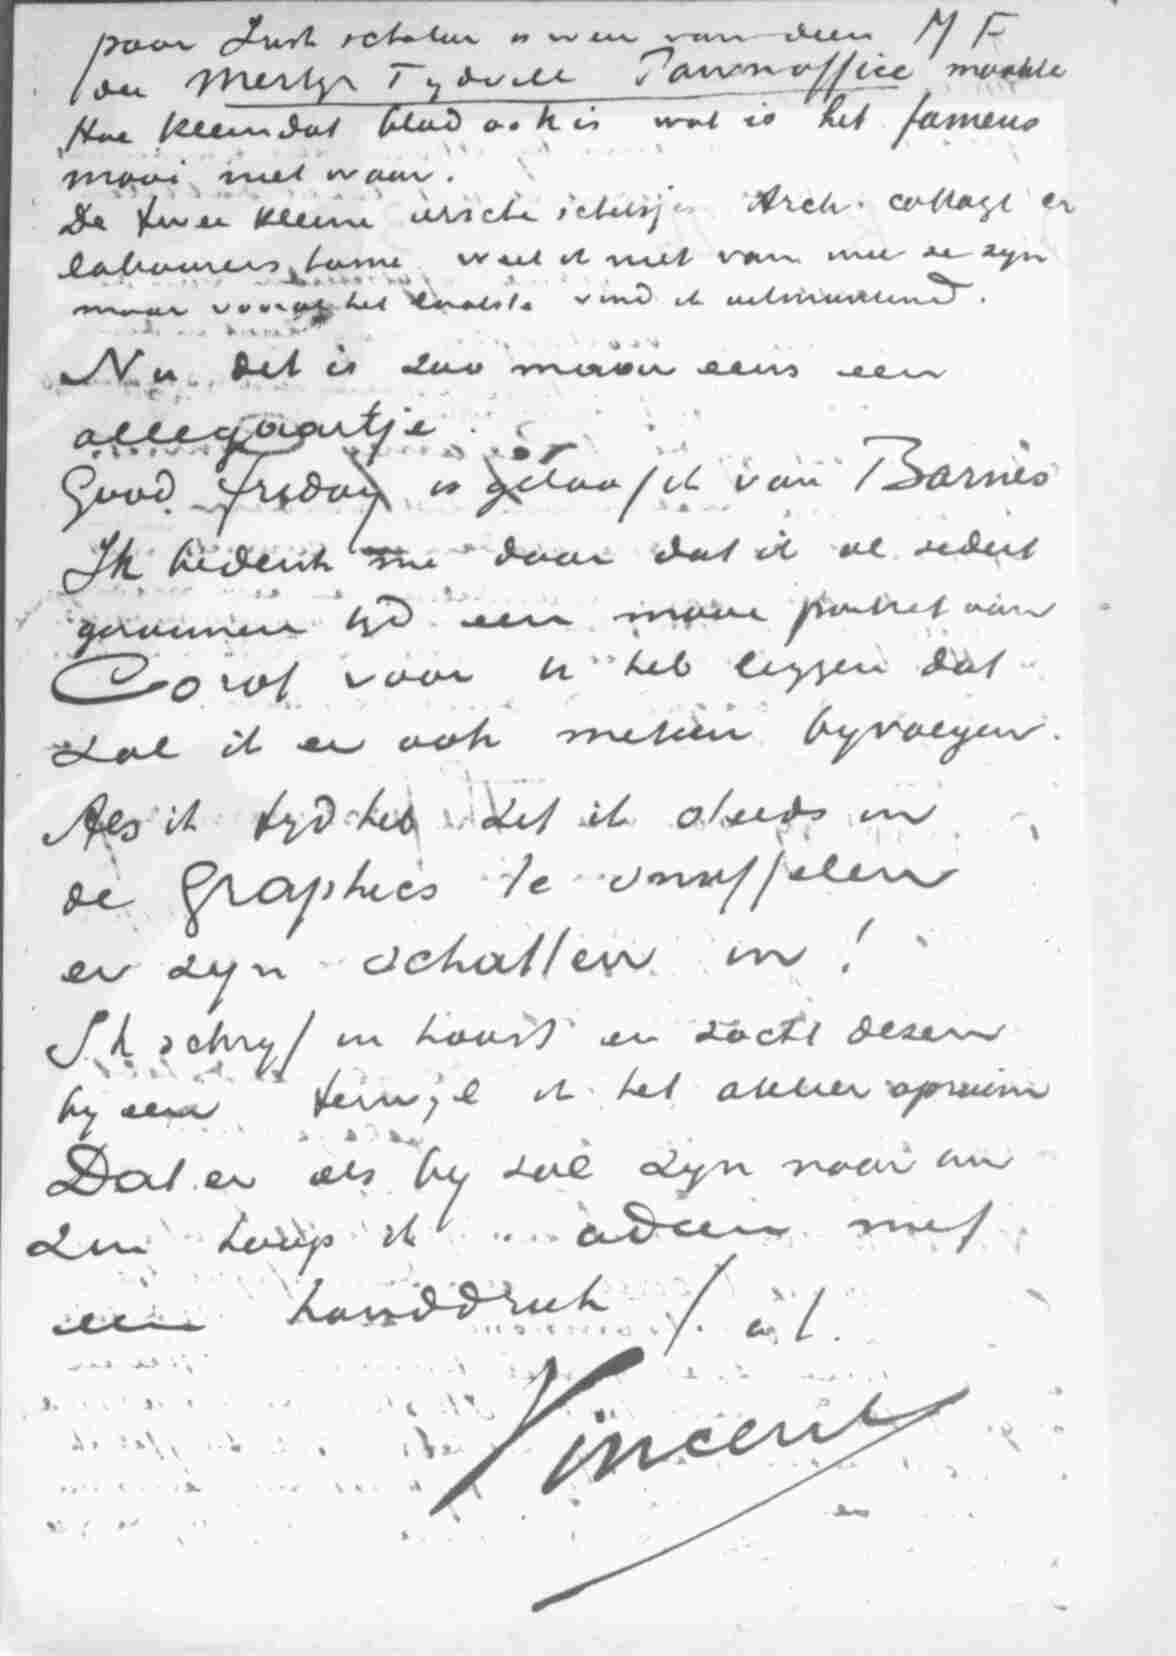 paar Irish schetsen is weer van dien MF
die Merthyr Tydvill Pawnoffice maakte
Hoe klein dat blad ook is wat is het fameus
mooi niet waar.
De twee kleine iersche schetsjes Arch. cottage en
labourers home weet ik niet van wie ze zyn
maar vooral het laatste vind ik uitmuntend.
Nu dit is zoo maar eens een
allegaartje.
Good friday is geloof ik van Barnes
Ik bedenk me daar dat ik al sedert
geruimen tyd een mooi portret van
Corot voor U heb leggen dat
zal ik er ook meteen byvoegen.
Als ik tyd heb zit ik steeds in
de Graphics te snuffelen
er zyn schatten in!
Ik schryf in haast en zocht dezen
byeen terwyl ik het atelier opruim
Dat er als by zal zyn naar uw
zin hoop ik. adieu met
een handdruk t. à t.
Vincent